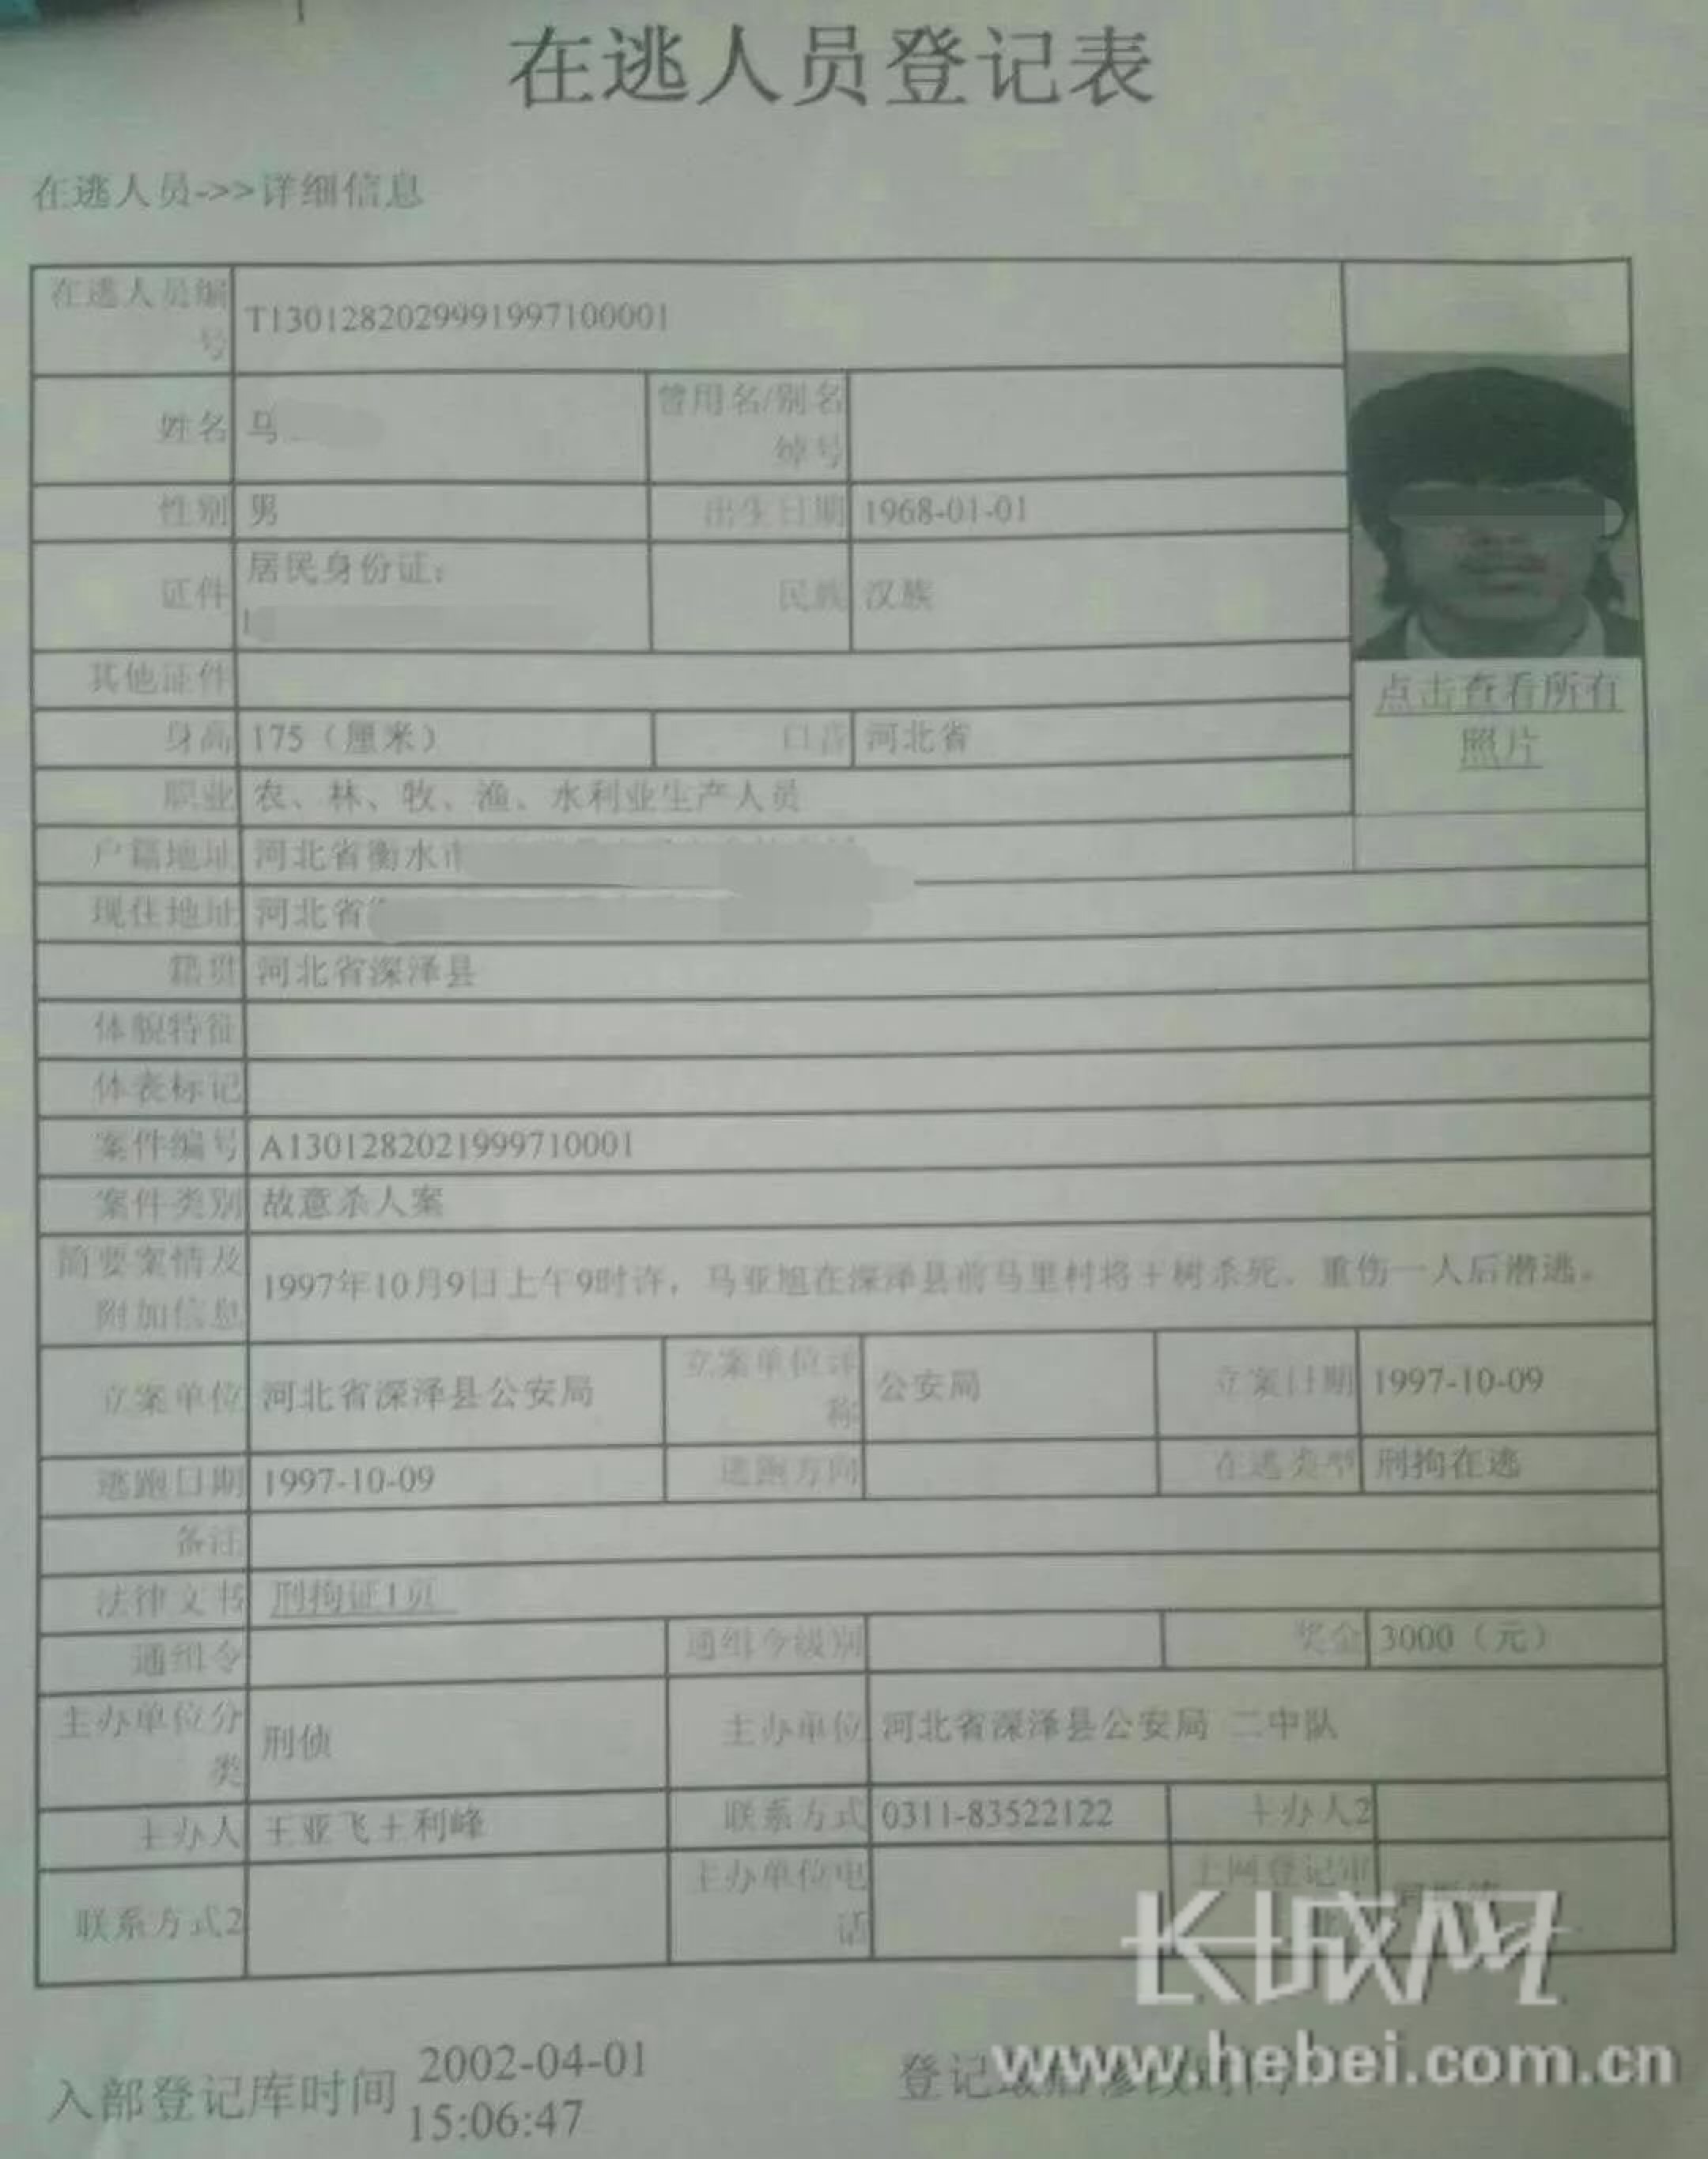 在逃人员登记表
在逃人员->>详细信息
在逃人员编
号
T1301282029991997100001
姓名
马
曾用名/别名
绰号
性别
男
出生日期
1968-01-01
证件
居民身份证:
民族
汉族
其他证件
身高
175（厘米）
口音
河北省
点击查看所有
照片
职业
农、林、牧、渔、水利业生产人员
户籍地址
河北省衡水市
现住地址
河北省
籍贯
河北省深泽县
体貌特征
体表标记
案件编号
A1301282021999710001
案件类别
故意杀人案
简要案情及
附加信息
1997年10月9日上午9时许，马亚旭在深泽县前马里村将 树杀死，重伤一人后潜逃。
立案单位
河北省深泽县公安局
立案单位详
称
公安局
立案日期
1997-10-09
逃跑日期
1997-10-09
逃跑方向
在逃类型
刑拘在逃
备注
法律文书
刑拘证1页
通缉令
通缉令级别
奖金
3000（元）
主办单位分
类
刑侦
主办单位
河北省深泽县公安局 二中队
主办人
王亚飞王利峰
联系方式
0311-83522122
主办人2
联系方式2
主办单位电
话
上网登记审
长城网
www.hebei.com.cn
入部登记库时间
2002-04-01
15:06:47
登记